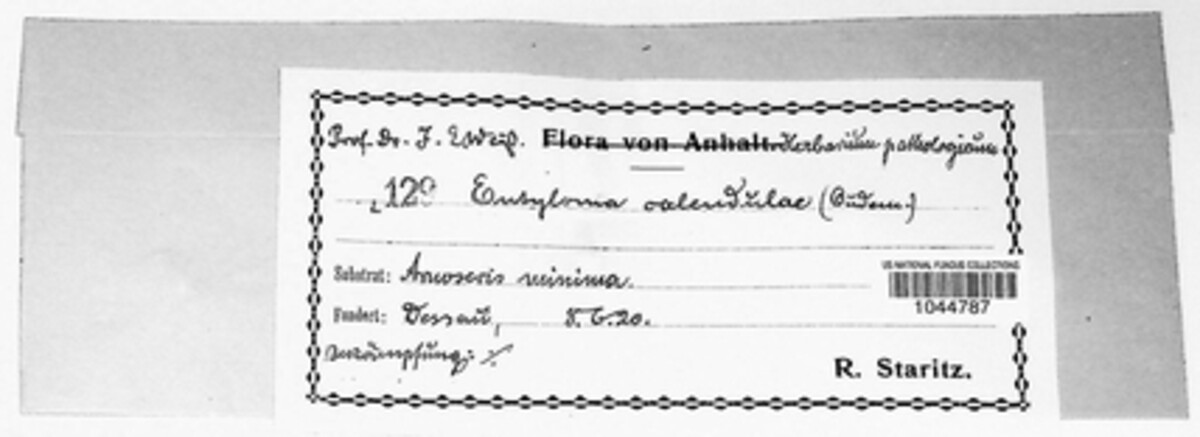 Prof. Dr. J. Weiß. Flora von Anhalt. Herbarium pathologicum
129 Entyloma calendulae (Oudem.)
Substrat: Arnoseris minima.
US NATIONAL FUNGUS COLLECTIONS
1044787
Fundort: Dessau, 8.6.20.
R. Staritz.